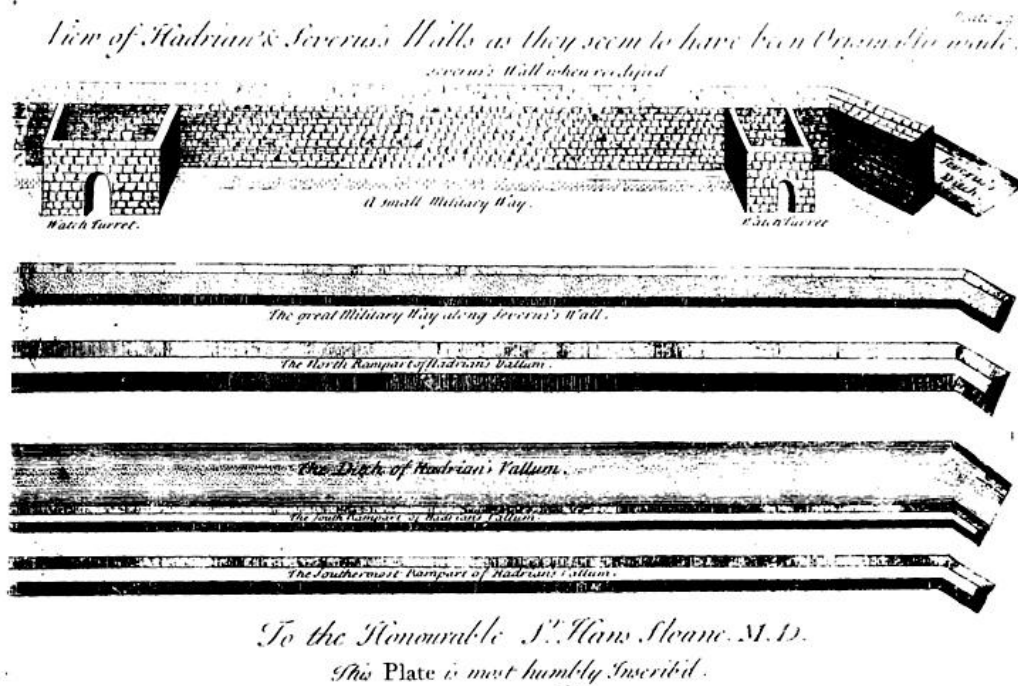 View of Hadrian's & Severus's Walls as they seem to have been Originally made.
Severus's Wall when reedifyed
Severus's Ditch
A small Military Way.
Watch Turret.
Watch Turret
The great Military Way along Severus's Wall.
The North Rampart of Hadrian's Vallum.
The Ditch of Hadrian's Vallum.
The South Rampart of Hadrian's Vallum.
The Southermost Rampart of Hadrian's Vallum.
To the Honourable Sr. Hans Sloane. M.D.
This Plate is most humbly Inscrib'd.